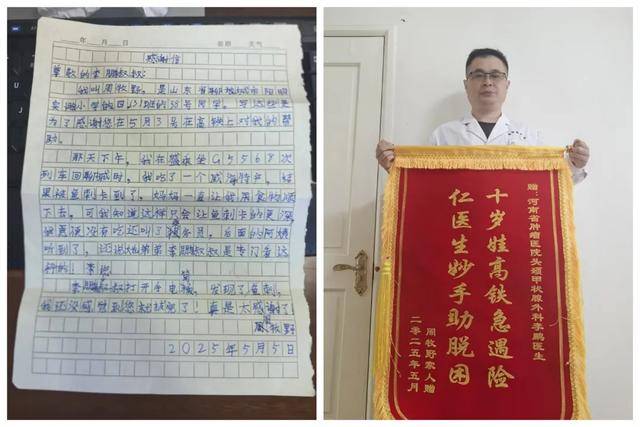 年 月 日 星期 天气
感谢信
尊敬的李鹏叔叔:
我叫周牧野,是山东省聊城市阳明
实验小学的四(3)班的38号同学。写这些是
为了感谢您在5月3号在高铁上对我的帮
助。
那天下午,我在威海坐G5568次
列车回聊城时,我吃了一个威海特产,结
果被鱼刺卡到了。妈妈一直让我用食物咽
下去,可我知道这样只会让鱼刺卡的更深
就更没有吃还叫了服务员,后面的阿姨
听到了,还说她弟弟李鹏叔叔是专门看这
种的!
李鹏叔叔打开手电筒,发现了鱼刺,
我还没感觉到您就拔完了!真是太感谢了
周牧野
2025年5月5日
赠:河南省肿瘤医院头颈甲状腺外科李鹏医生
十岁娃高铁急遇险
仁医生妙手助脱困
周牧野家人赠
二零二五年五月